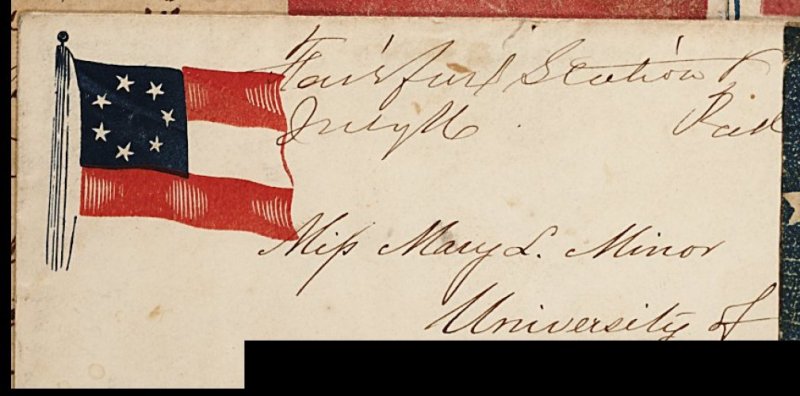 Fairfax Station
July 16 Paid
Miss Mary L. Minor
University of